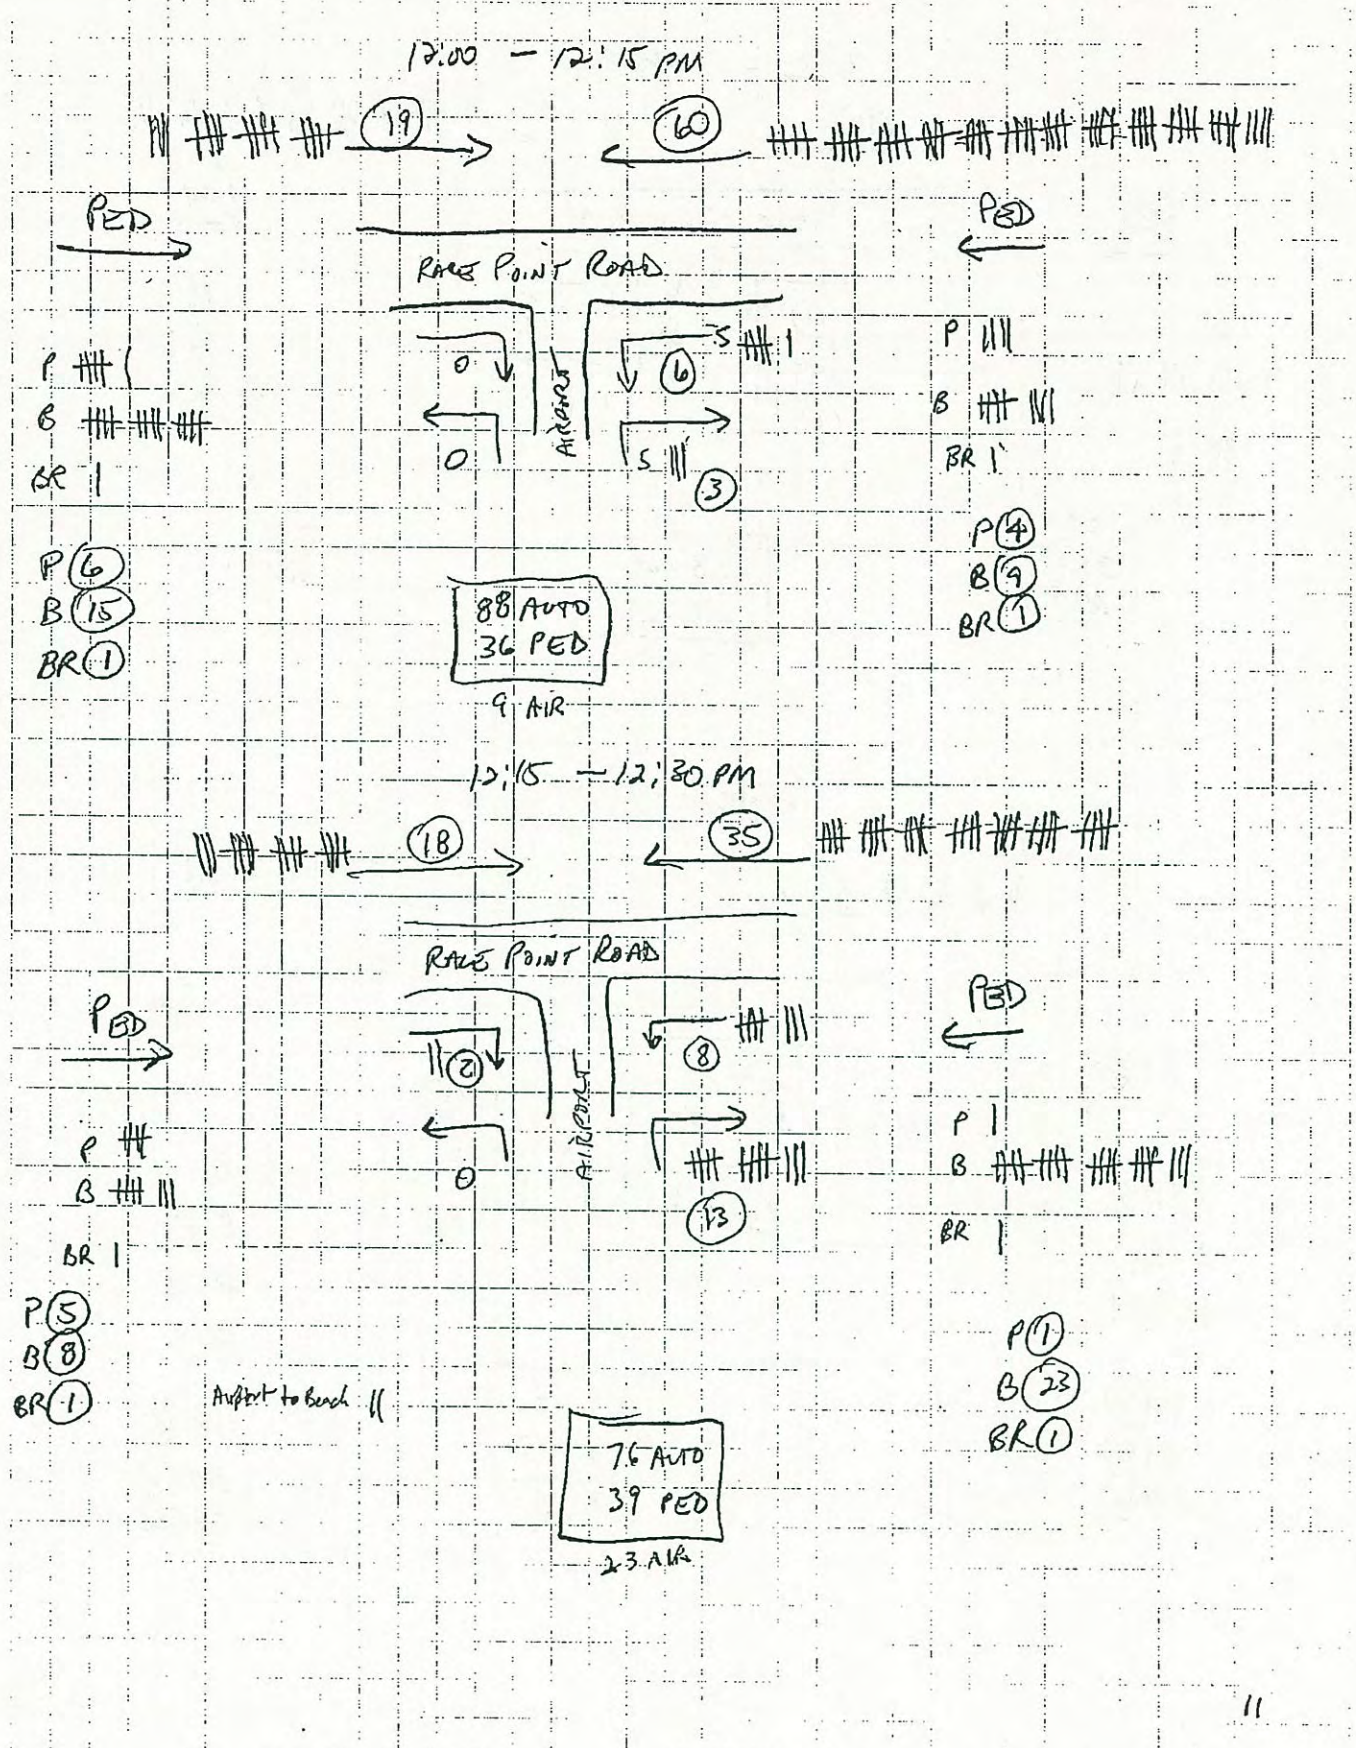 12:00 - 12:15 PM
19 60
PED PED
RACE POINT ROAD
P
B
BR
0 S 6
AIRPORT
0 S 3
P
B
BR
P 6
B 15
BR 1
P 4
B 9
BR 1
88 AUTO
36 PED
9 AIR
12:15 - 12:30 PM
18 35
RACE POINT ROAD
PED PED
2 8
AIRPORT
0 13
P
B
BR
P
B
BR
P 5
B 8
BR 1
P 1
B 23
BR 1
Airport to Beach
76 AUTO
39 PED
23 AIR
11